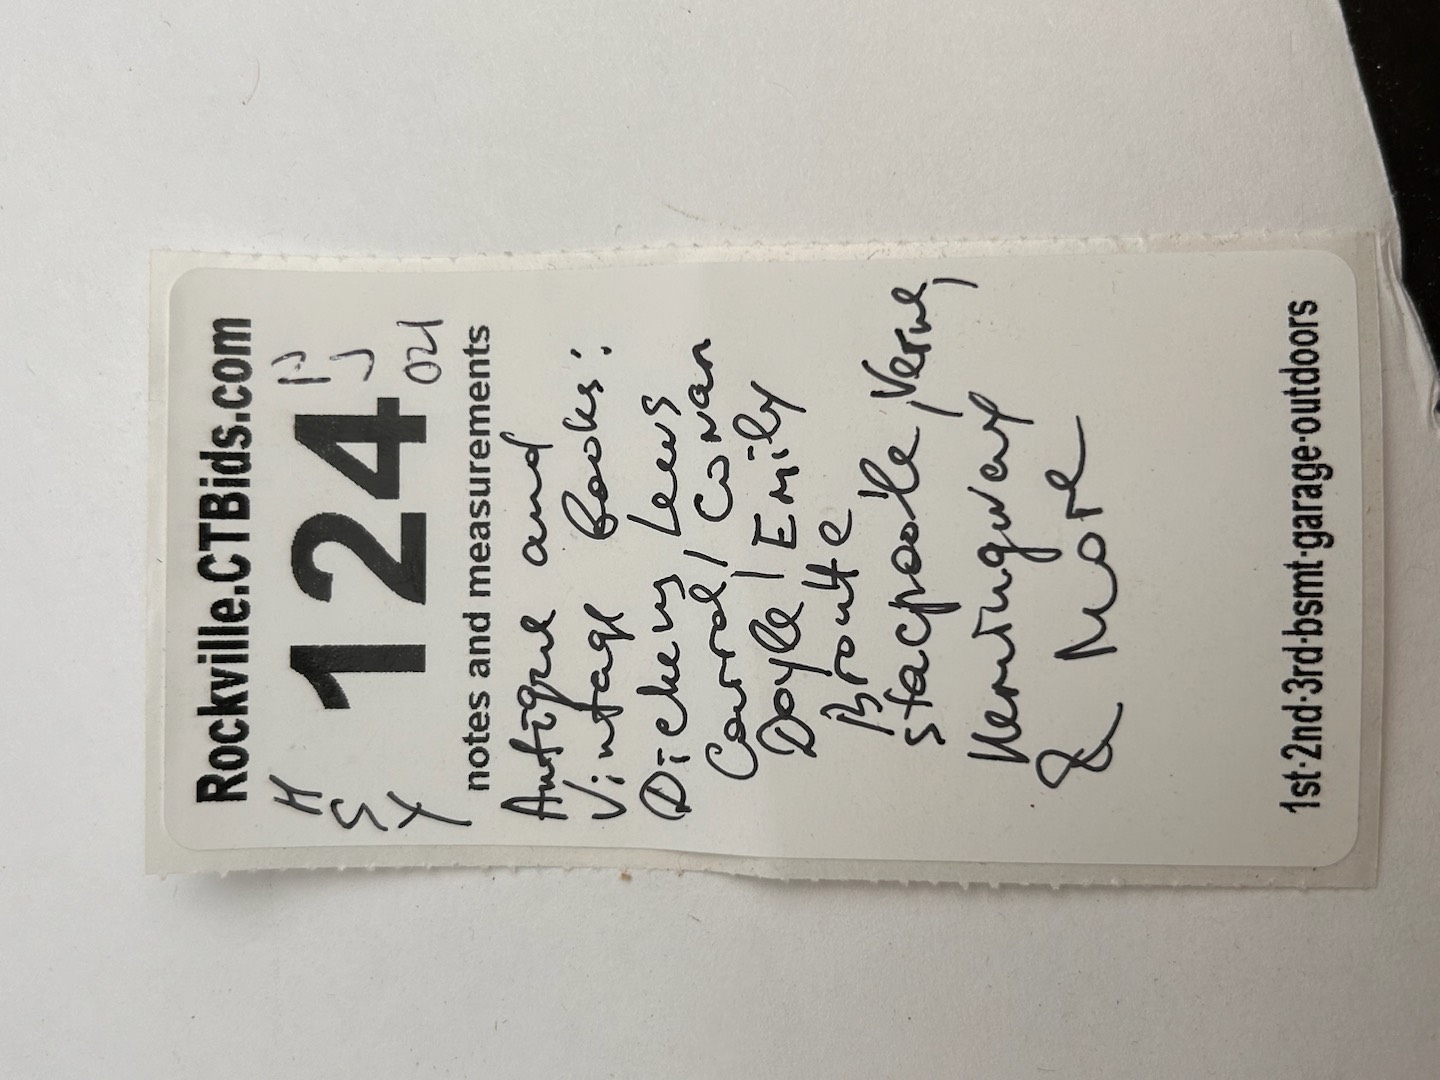 Rockville.CTBids.com
H
S
Y
124
021
notes and measurements
Antique and
Vintage books:
Dickens, Lews
Carrol, Conan
Doyle, Emily
Bronte
Stacpoole, Verne,
Hemingway
& More
1st·2nd·3rd·bsmt·garage·outdoors